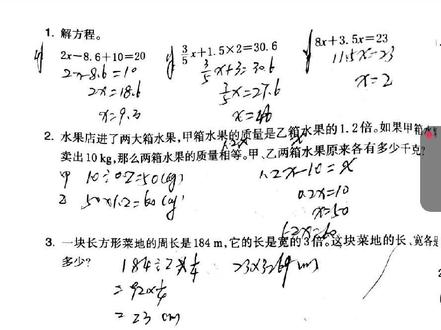 1. 解方程。
2x-8.6+10=20
3/5x+1.5×2=30.6
8x+3.5x=23
2x-8.6=10
2x=18.6
x=9.3
3/5x+3=30.6
3/5x=27.6
x=46
11.5x=23
x=2
2. 水果店进了两大箱水果,甲箱水果的质量是乙箱水果的1.2倍。如果甲箱水
卖出10kg,那么两箱水果的质量相等。甲、乙两箱水果原来各有多少千克?
1.2x
x
甲 10÷0.2=50(kg)
乙 50×1.2=60(kg)
1.2x-10=x
0.2x=10
x=50
1.2x=60
3. 一块长方形菜地的周长是184m,它的长是宽的3倍。这块菜地的长、宽各是
多少?
184÷2×1/4
=92×1/4
=23 cm
23×3=69 m